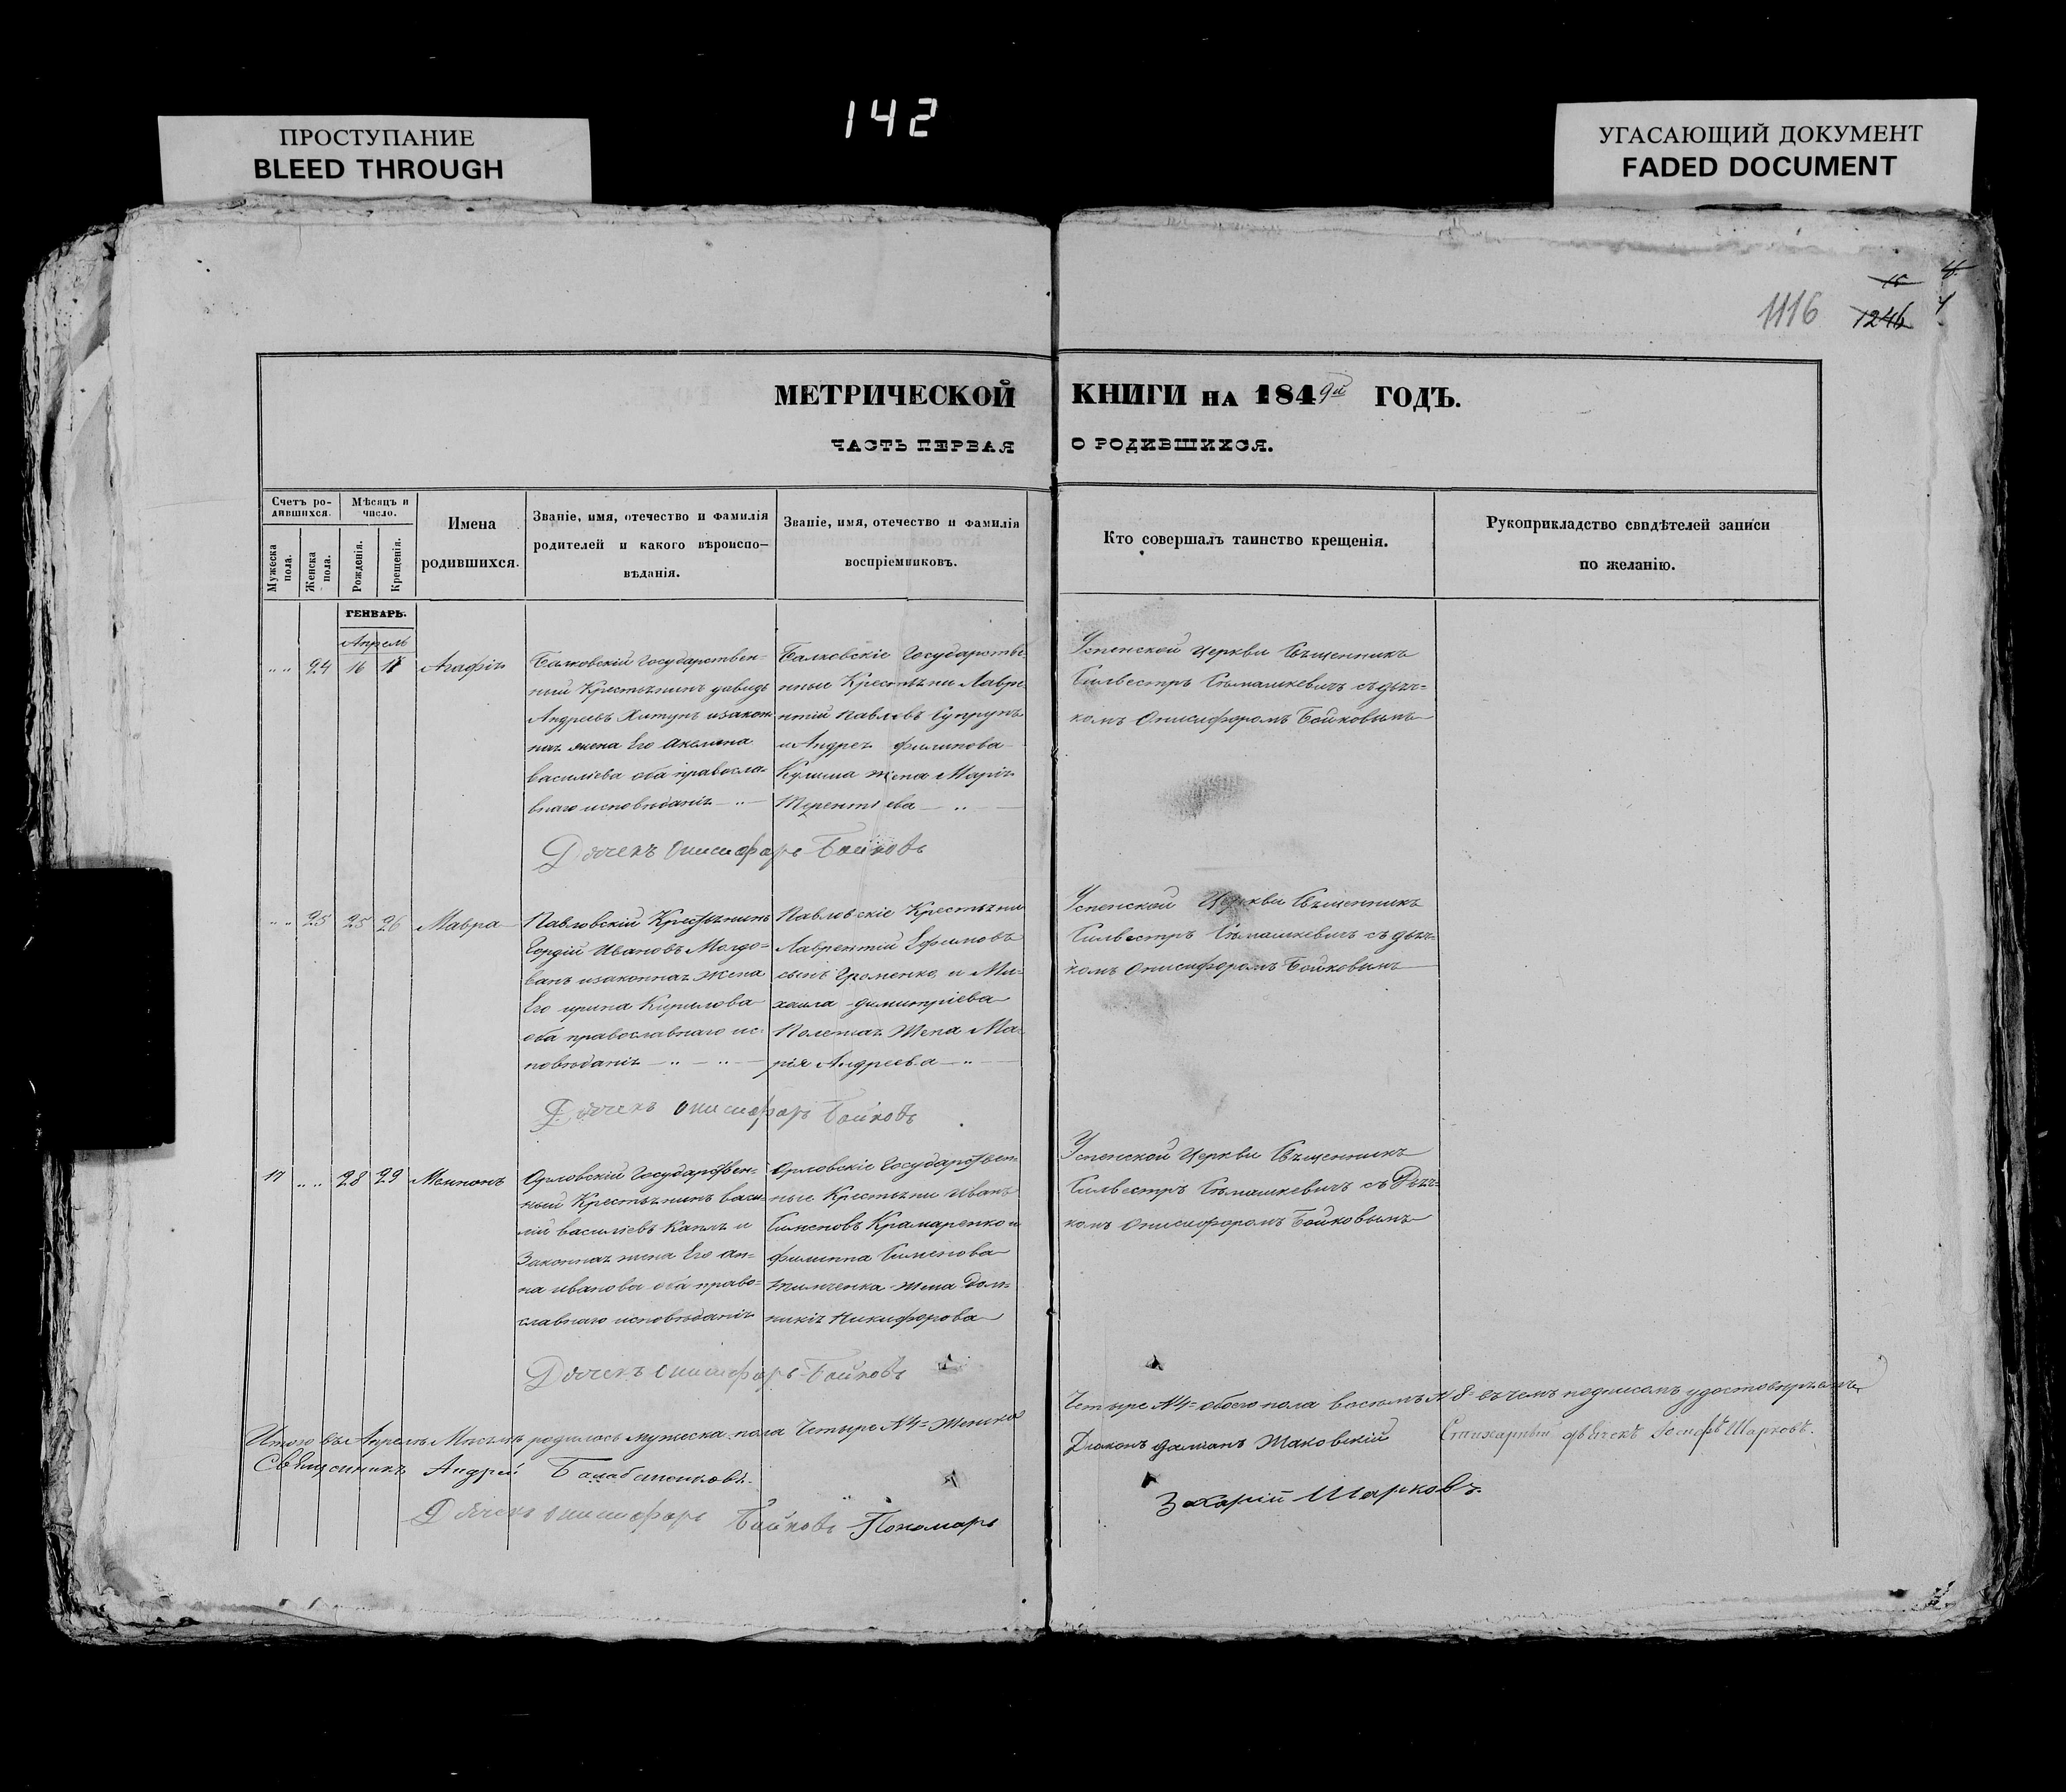 142
ПРОСТУПАНИЕ
BLEED THROUGH
УГАСАЮЩИЙ ДОКУМЕНТ
FADED DOCUMENT
15 4
1116 1246
МЕТРИЧЕСКОЙ КНИГИ НА 1849й ГОДЪ.
ЧАСТЬ ПЕРВАЯ О РОДИВШИХСЯ.
Счетъ ро-
дившихся.
Мужеска пола.
Женска пола.
Мѣсяцъ и
число.
Рожденія.
Крещенія.
Имена
родившихся.
Званіе, имя, отечество и фамилія
родителей и какого вѣроиспо-
вѣданія.
Званіе, имя, отечество и фамилія
воспріемниковъ.
Кто совершалъ таинство крещенія.
Рукоприкладство свидѣтелей записи
по желанію.
ГЕНВАРЬ.
Апрель
24 16 17 Агафія
Балковскій Государствен=
ный Крестьянинъ давидъ
Андреевъ Хитунъ изакон
ная жена Его Акелина
василіева оба правосла-
внаго исповѣданія
Балковскіе Государстве-
нные Крестьяни Лавре
нтій Павловъ Супрунъ
и Андрея филипова
Кулиша жена Марія
Терентіева
Успенской Церкви Священникъ
Силвестръ Сѣмашкевичъ съ дьяч=
комъ Онисифоромъ Бойковымъ
Дячекъ Онисифоръ Бойковъ
25 25 26 Мавра
Павловскій Крестьянинъ
Сергій Ивановъ Молдо=
ванъ изаконная жена
Его ирина Кирилова
оба православнаго ис-
повѣданія
Павловскіе Крестьяни
Лаврентій Ефимовъ
сынъ Громенко, и Ми-
хаила димитріева
жена Ма-
рія Андреева
Успенской Церкви Священникъ
Силвестръ Сѣмашкевичъ съ дьяч-
комъ Онисифоромъ Бойковымъ
Дячекъ Онисифоръ Бойковъ
17 28 29 Мемнонъ
Орловскій Государствен-
ный Крестьянинъ васи-
лій василіевъ и
Законная жена Его ан-
на иванова оба право-
славнаго исповѣданія
Орловскіе Государствен-
ные Крестьяни Иванъ
Симоновъ Крамаренко и
филиппа Сименова
жена Дом=
никія Никифорова
Успенской Церкви Священникъ
Силвестръ Сѣмашкевичъ съ Дьяч=
комъ Онисифоромъ Бойковымъ
Дячекъ Онисифоръ Бойковъ
Итого въ Апрелѣ Мѣсяцѣ родилось мужеска пола Четыре №4= Женска Четыре №4= обоего пола восемь №8= въ чемъ подписомъ удостовѣряемъ
Священникъ Андрей Діаконъ даміанъ Маковскій Стихарный дьячекъ Іосифъ Шарковъ.
Дячекъ Онисифоръ Бойковъ Пономарь Захарій Шарковъ.